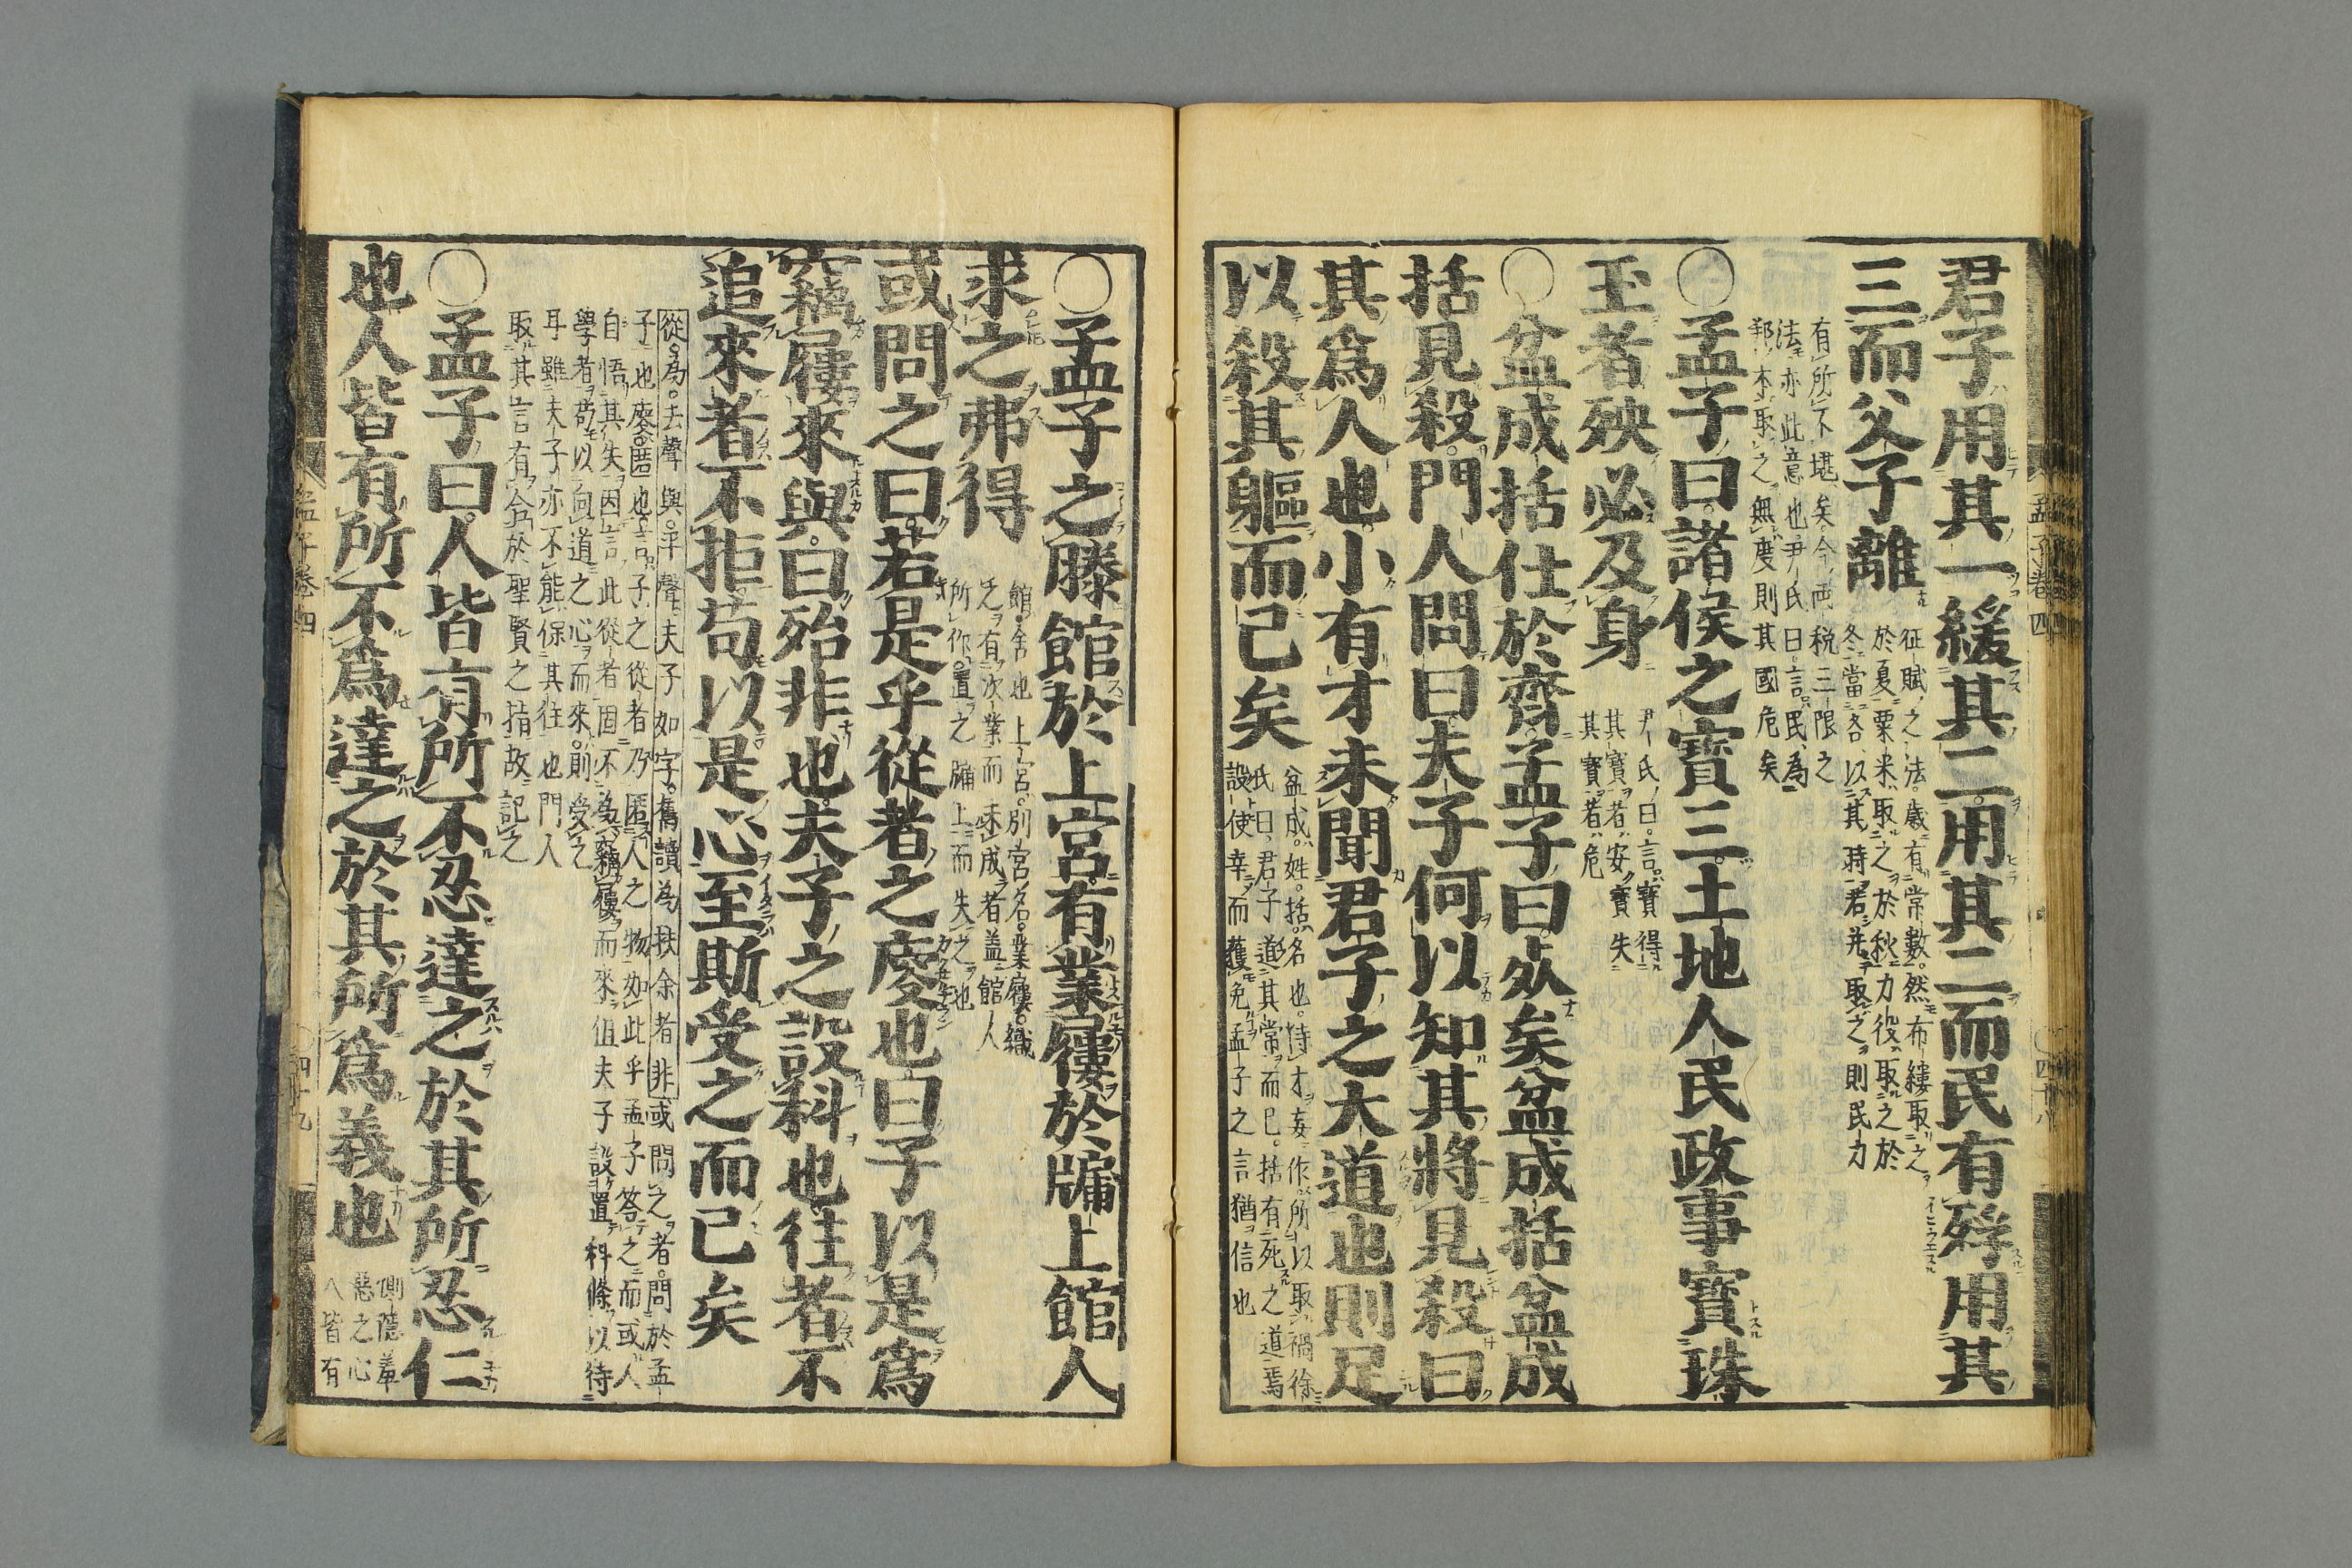 君子用其一緩其二用其二而民有殍用其
三而父子離
征賦之法歳有常數然布縷取之
於夏粟米取之於秋力役取之於
冬當各以其時若并取之則民力
有所不堪矣今両税三限之
法亦此意也尹氏曰言民為
邦本取之無度則其國危矣
○孟子曰諸侯之寳三土地人民政事寳珠
玉者殃必及身
尹氏曰言寳得
其寳者安寳失
其寳者危
○盆成括仕於齊孟子曰死矣盆成括盆成
括見殺門人問曰夫子何以知其將見殺曰
其爲人也小有才未聞君子之大道也則足
以殺其軀而已矣
盆成姓括名也恃才妄作所以取禍徐
氏曰君子道其常而已括有死之道焉
設使幸而獲免孟子之言猶信也
孟子卷四
四十八
○孟子之滕館於上宮有業屨於牖上館人
求之弗得
館舍也上宮別宮名業屨織
之有次業而未成者蓋館人
所作置之牖上而失之也
或問之曰若是乎從者之廋也曰子以是爲
竊屨來與曰殆非也夫子之設科也往者不
追來者不拒苟以是心至斯受之而已矣
從為去聲與平聲夫子如字舊讀為扶余者非或問之者問於孟
子也廋匿也言子之從者乃匿人之物如此乎孟子答之而或人
自悟其失因言此從者固不為竊屨而來但夫子設置科條以待
學者苟以向道之心而來則受之
耳雖夫子亦不能保其往也門人
取其言有合於聖賢之指故記之
○孟子曰人皆有所不忍達之於其所忍仁
也人皆有所不爲達之於其所爲義也
惻隱羞
惡之心
人皆有
孟子卷四
四十九